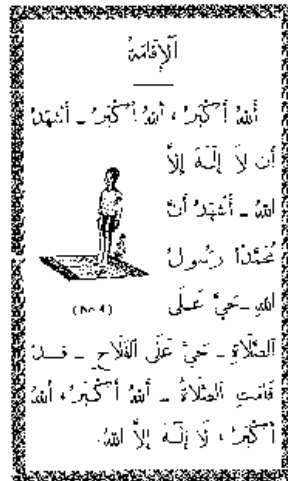 اَلْإِقَامَةُ
اَللهُ أَكْبَرُ ، اَللهُ أَكْبَرُ ـ أَشْهَدُ
أَن لاَ إِلَـهَ إِلاَّ
اللهُ ـ أَشْهَدُ أَنَّ
مُحَمَّدًا رَسُولُ
اللهِ ـ حَيَّ عَـلَى
(No 4)
اَلصَّلاَةِ ـ حَيَّ عَلَى اَلْفَلاَحِ ـ قَـدْ
قَامَتِ اَلصَّلاَةُ ـ اَللهُ أَكْبَرُ ، اَللهُ
أَكْبَرُ ، لاَ إِلَـهَ إِلاَّ اللهُ.